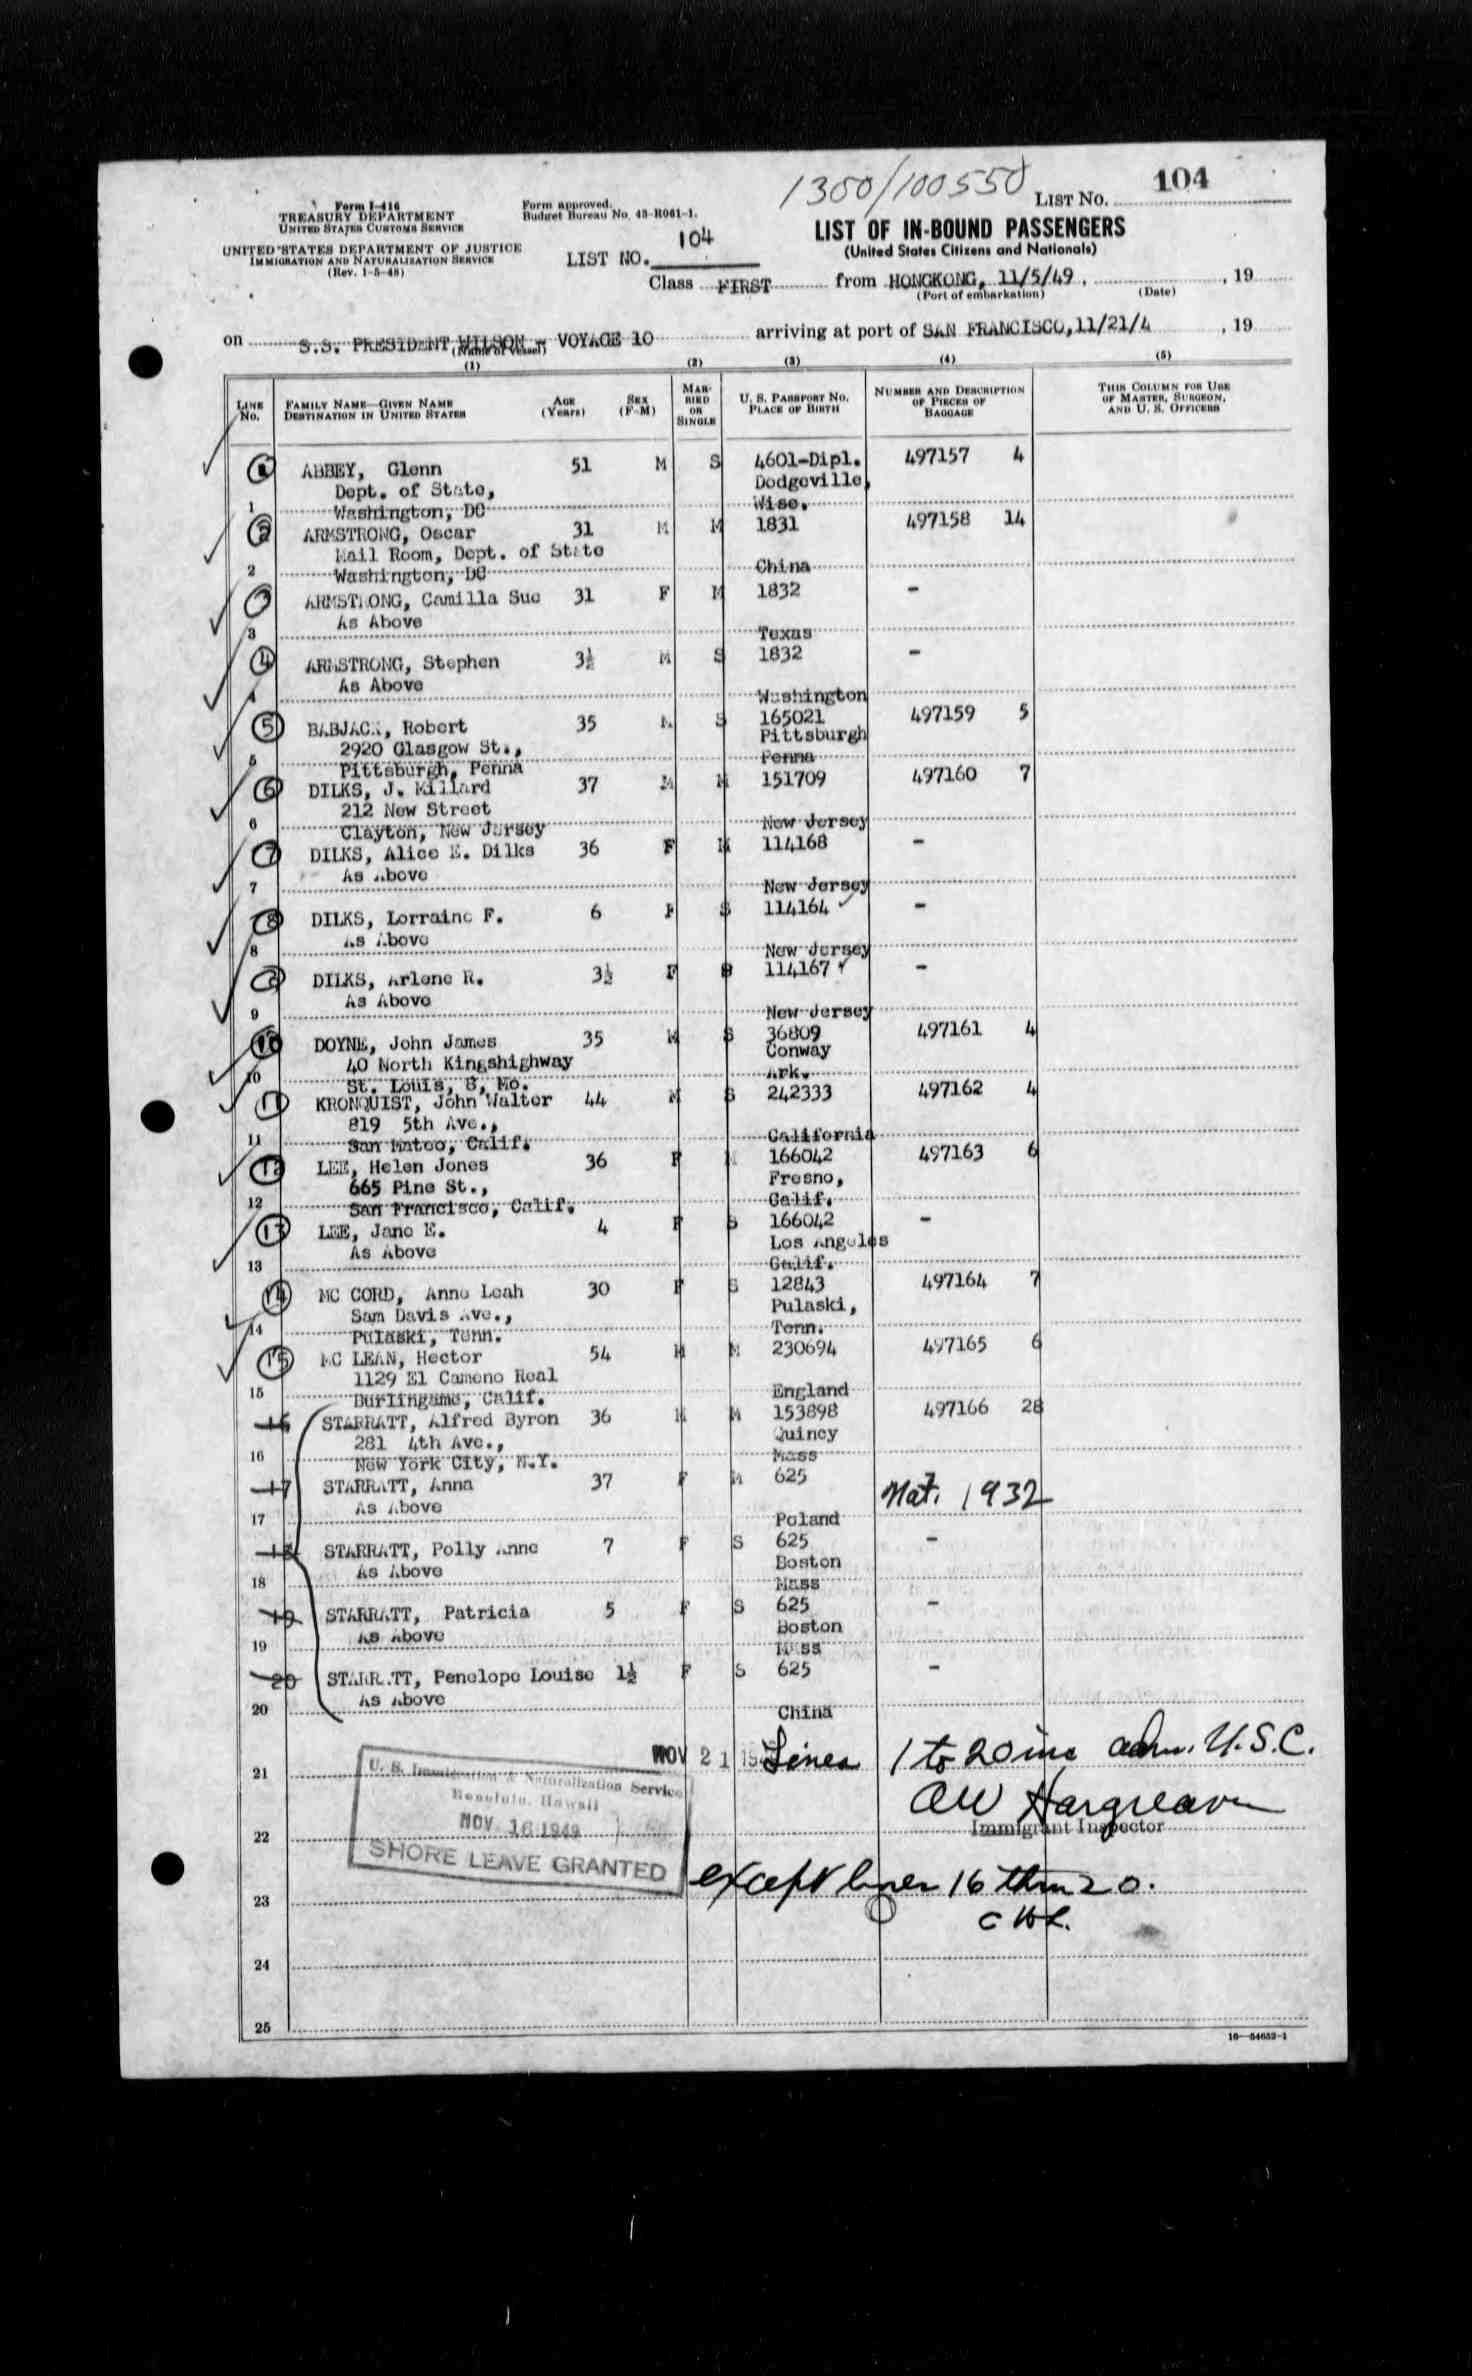 1300/100550
LIST NO. 104
Form I-416
TREASURY DEPARTMENT
UNITED STATES CUSTOMS SERVICE
Form approved.
Budget Bureau No. 43-R061-1.
UNITED STATES DEPARTMENT OF JUSTICE
IMMIGRATION AND NATURALIZATION SERVICE
(Rev. 1-5-48)
LIST NO. 104
LIST OF IN-BOUND PASSENGERS
(United States Citizens and Nationals)
Class FIRST from HONGKONG, 11/5/49 , 19
(Port of embarkation) (Date)
on S.S. PRESIDENT WILSON - VOYAGE 10 arriving at port of SAN FRANCISCO, 11/21/4 , 19
(Name of vessel)
(1) (2) (3) (4) (5)
LINE NO. FAMILY NAME—GIVEN NAME DESTINATION IN UNITED STATES AGE (Years) SEX (F-M) MARRIED OR SINGLE U. S. PASSPORT NO. PLACE OF BIRTH NUMBER AND DESCRIPTION OF PIECES OF BAGGAGE THIS COLUMN FOR USE OF MASTER, SURGEON, AND U. S. OFFICERS
ABBEY, Glenn 51 M S 4601-Dipl. 497157 4
Dept. of State, Dodgeville,
1 Washington, DC Wisc.
2 ARMSTRONG, Oscar 31 M M 1831 497158 14
Mail Room, Dept. of State
2 Washington, DC China
ARMSTRONG, Camilla Sue 31 F M 1832 -
As Above
3 Texas
4 ARMSTRONG, Stephen 3½ M S 1832 -
As Above
4 Washington
5 BABJACK, Robert 35 M S 165021 497159 5
2920 Glasgow St., Pittsburgh
5 Pittsburgh, Penna Penna
6 DILKS, J. Millard 37 M M 151709 497160 7
212 New Street
6 Clayton, New Jersey New Jersey
7 DILKS, Alice E. Dilks 36 F M 114168 -
As Above
7 New Jersey
8 DILKS, Lorraine F. 6 F S 114164 ✓ -
As Above
8 New Jersey
DILKS, Arlene R. 3½ F S 114167 ✓ -
As Above
9 New Jersey
10 DOYNE, John James 35 M S 36809 497161 4
40 North Kingshighway Conway
10 St. Louis, 8, Mo. Ark.
11 KRONQUIST, John Walter 44 M S 242333 497162 4
819 5th Ave.,
11 San Mateo, Calif. California
12 LEE, Helen Jones 36 F M 166042 497163 6
665 Pine St., Fresno,
12 San Francisco, Calif. Calif.
13 LEE, Jane E. 4 F S 166042 -
As Above Los Angeles
13 Calif.
14 MC CORD, Anne Leah 30 F S 12843 497164 7
Sam Davis Ave., Pulaski,
14 Pulaski, Tenn. Tenn.
15 MC LEAN, Hector 54 M M 230694 497165 6
1129 El Cameno Real
15 Burlingame, Calif. England
16 STARRATT, Alfred Byron 36 M M 153898 497166 28
281 4th Ave., Quincy
16 New York City, N.Y. Mass
17 STARRATT, Anna 37 F M 625
As Above Nat. 1932
17 Poland
18 STARRATT, Polly Anne 7 F S 625 -
As Above Boston
18 Mass
19 STARRATT, Patricia 5 F S 625 -
As Above Boston
19 Mass
20 STARRATT, Penelope Louise 1½ F S 625 -
As Above
20 China
NOV 21 194 Lines 1 to 20 inc adm. U.S.C.
21
U. S. Immigration & Naturalization Service
Honolulu, Hawaii
NOV 16 1949
SHORE LEAVE GRANTED
AW Hargreaves
22 Immigrant Inspector
except lines 16 thru 20.
23
24
25
16—54652-1